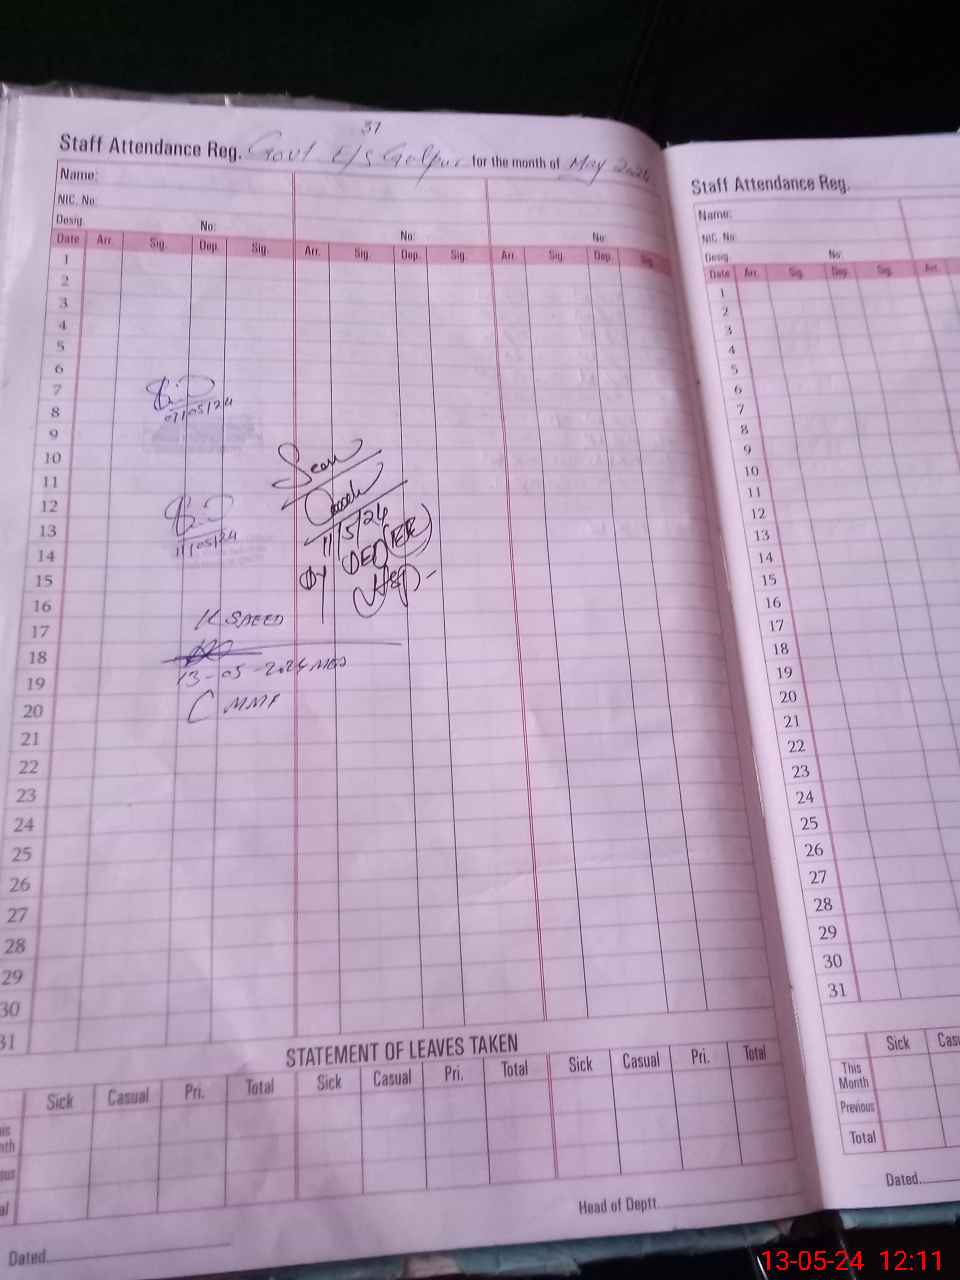 37
Staff Attendance Reg. Govt E/S Golpur for the month of May 2024
Name:
NIC. No.
Desig. No: No: No:
Date Arr. Sig. Dep. Sig. Arr. Sig. Dep. Sig. Arr. Sig. Dep. Sig.
1
2
3
4
5
6
7
8
9
10
11
12
13
14
15
16
17
18
19
20
21
22
23
24
25
26
27
28
29
30
31
07/05/24
11/05/24
Seen
11/5/24
Dy DEO
K SAEED
13-05-2024
STATEMENT OF LEAVES TAKEN
Sick Casual Pri. Total Sick Casual Pri. Total Sick Casual Pri. Total
Head of Deptt.
Dated
Staff Attendance Reg.
Name:
NIC. No.
Desig. No:
Date Arr. Sig. Dep. Sig. Arr.
1
2
3
4
5
6
7
8
9
10
11
12
13
14
15
16
17
18
19
20
21
22
23
24
25
26
27
28
29
30
31
Sick
This
Month
Previous
Total
Dated
13-05-24 12:11